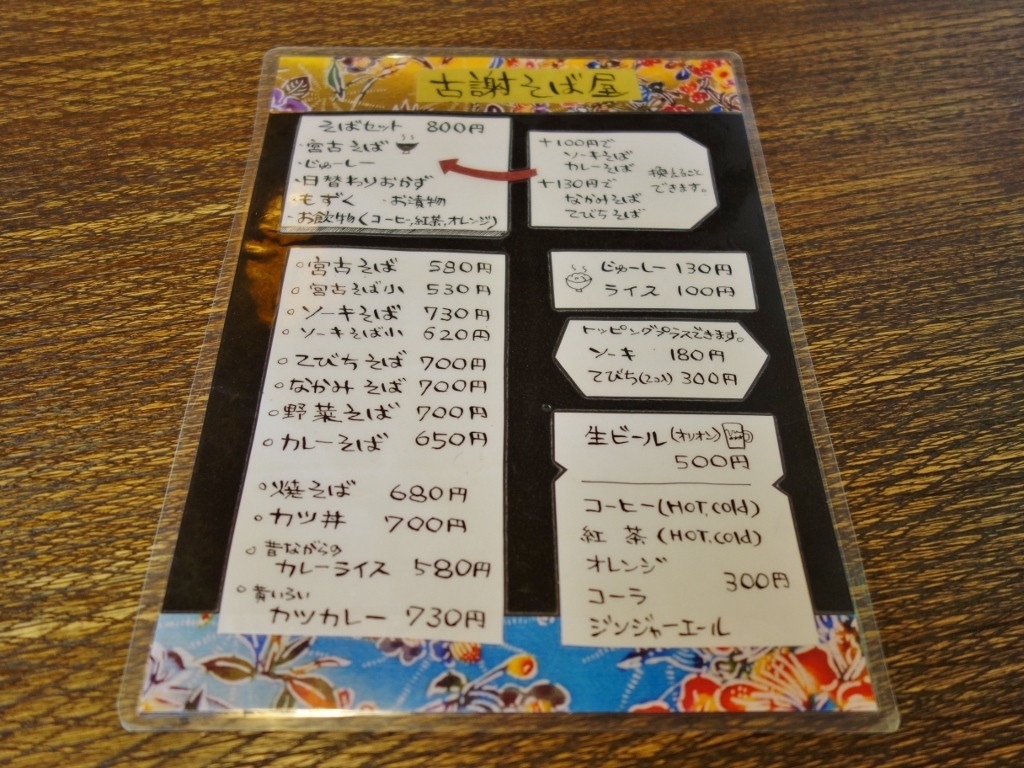 古謝そば屋
そばセット 800円
・宮古そば
・じゅーしー
・日替わりおかず
・もずく ・お漬物
・お飲物(コーヒ,紅茶,オレンジ)
+100円で
ソーキそば
カレーそば
+130円で
なかみそば
てびちそば
換えること
できます。
○宮古そば 580円
○宮古そば小 530円
○ソーキそば 730円
○ソーキそば小 620円
○てびちそば 700円
○なかみそば 700円
○野菜そば 700円
○カレーそば 650円
○焼そば 680円
○カツ丼 700円
○昔ながらの
カレーライス 580円
○黄いろい
カツカレー 730円
じゅーしー 130円
ライス 100円
トッピングプラスできます。
ソーキ 180円
てびち(2コ入) 300円
生ビール(オリオン)
500円
コーヒー(HOT,cold)
紅 茶(HOT,cold)
オレンジ
300円
コーラ
ジンジャーエール